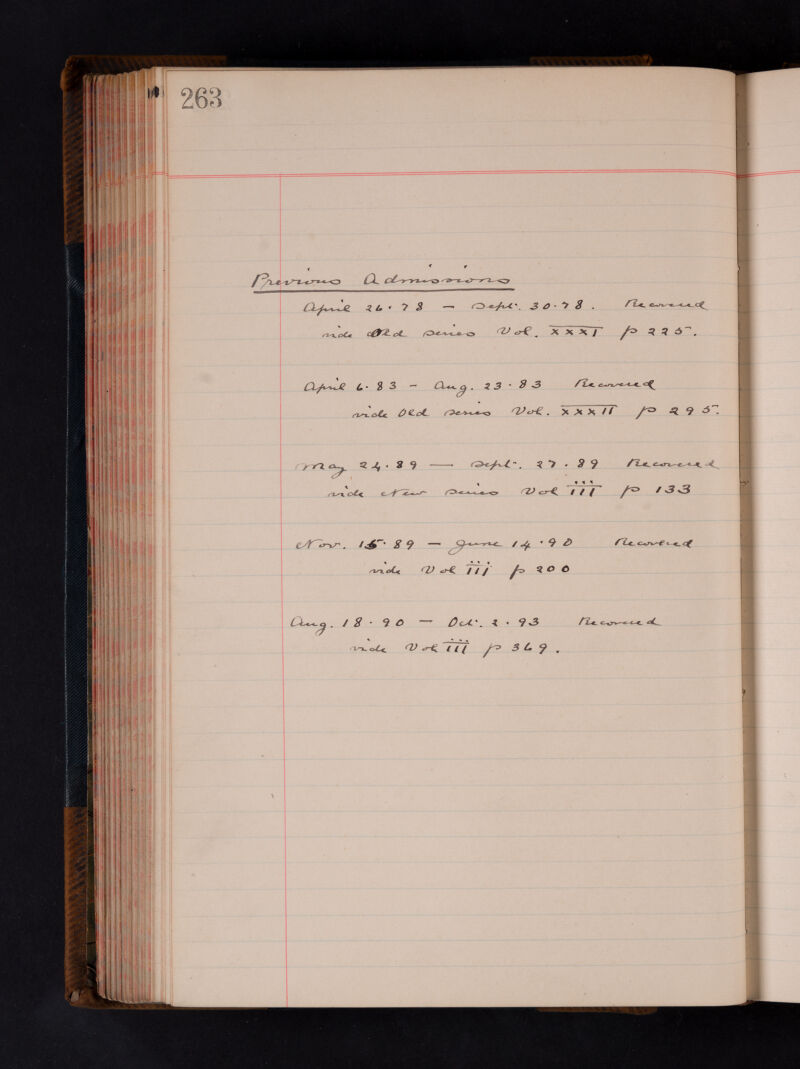 263
Previous Admissions
April 26 · 78 — Sept. 30 · 78 . Recovered
vide Old series Vol. XXXI p 225.
April 6 · 83 – Aug. 23 · 83 Recovered
vide Old series Vol. XXXII p 295.
May 24 · 89 — Sept. 27 · 89 Recovered
vide New series Vol III p 133
Nov. 15 · 89 — June 14 · 90 Recovered
vide Vol III p 200
Aug. 18 · 90 — Oct. 2 · 93 Recovered
vide Vol III p 369 .